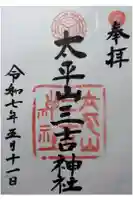 奉拝
太平山三吉神社
令和七年五月十一日